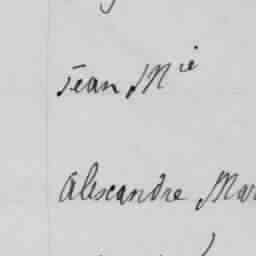 Jean Mie
Alexandre Mar